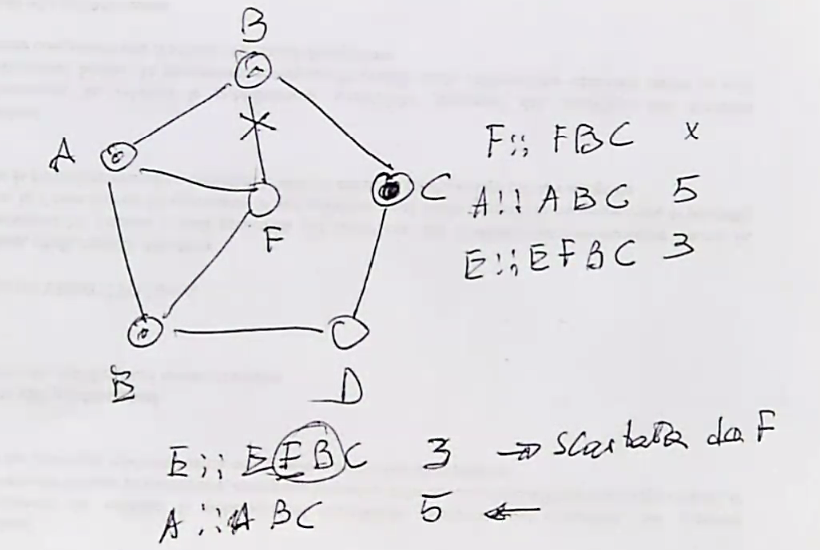 B
A
C
F
E
D
F:: FBC x
A:: ABC 5
E:: EFBC 3
E:: EFBC 3 → scartata da F
A:: ABC 5 ←